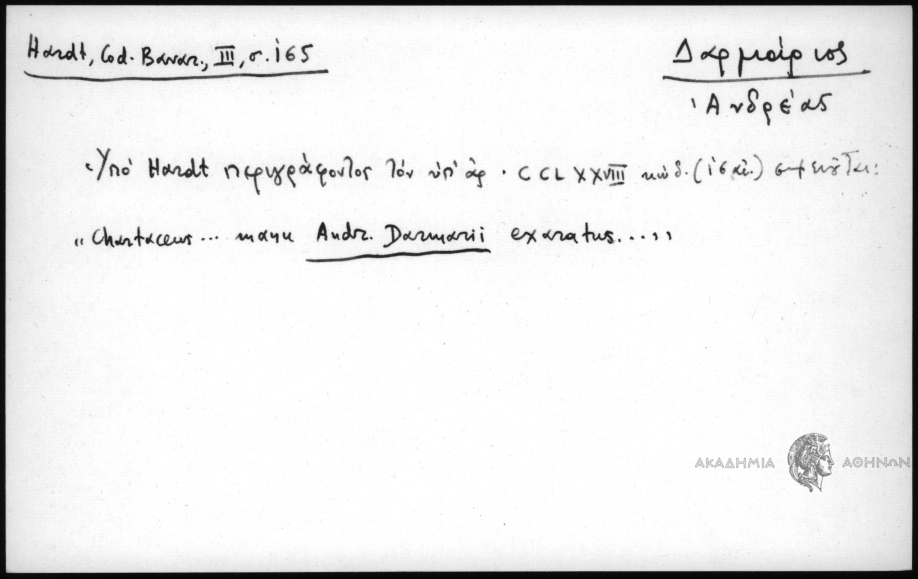 Hardt, Cod. Bavar., III, σ. 165
Δαρμάριος
Ἀνδρέας
Ὑπὸ Hardt περιγράφοντος τὸν ὑπ' ἀρ. CCLXXVIII κώδ. (ις αἰ.) σημειοῦται:
„Chartaceus ... manu Andr. Darmarii exaratus....„
ΑΚΑΔΗΜΙΑ ΑΘΗΝΩΝ